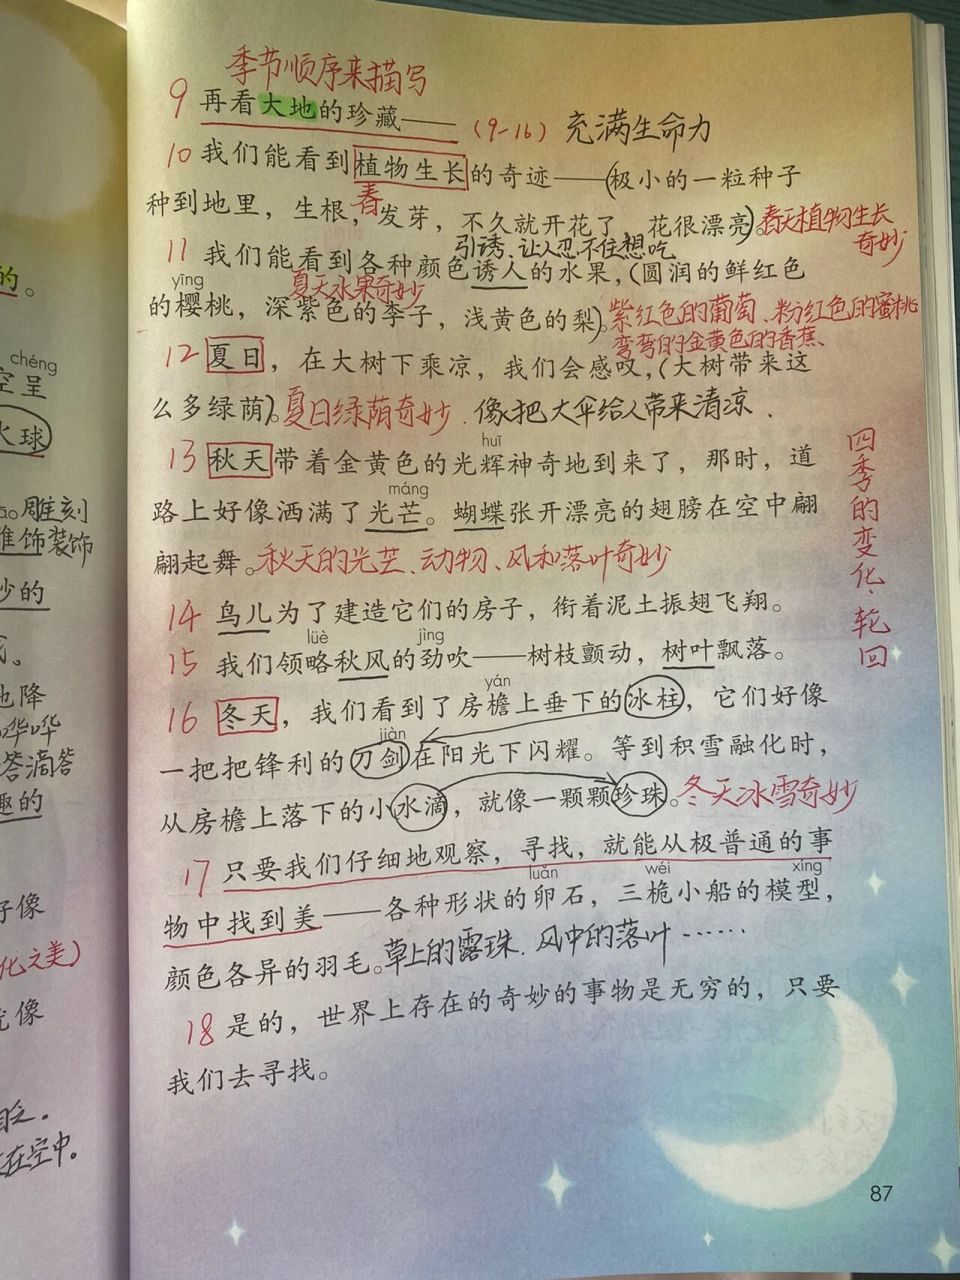 的。
chéng
空呈
火球
雕刻
装饰
妙的
地降
哗哗
嗒滴答
趣的
好像
化之美）
就像
在空中。
季节顺序来描写
9 再看大地的珍藏——（9-16）充满生命力
10 我们能看到植物生长的奇迹——（极小的一粒种子
春
种到地里，生根，发芽，不久就开花了，花很漂亮）。春天植物生长
奇妙
引诱、让人忍不住想吃
11 我们能看到各种颜色诱人的水果，（圆润的鲜红色
yīng
夏天水果奇妙
的樱桃，深紫色的李子，浅黄色的梨）。紫红色的葡萄、粉红色的蜜桃
弯弯的金黄色的香蕉、
12 夏日，在大树下乘凉，我们会感叹，（大树带来这
么多绿荫）。夏日绿荫奇妙．像把大伞给人带来清凉．
huī
13 秋天带着金黄色的光辉神奇地到来了，那时，道
máng
路上好像洒满了光芒。蝴蝶张开漂亮的翅膀在空中翩
翩起舞。秋天的光芒、动物、风和落叶奇妙
14 鸟儿为了建造它们的房子，衔着泥土振翅飞翔。
lüè jìng
15 我们领略秋风的劲吹——树枝颤动，树叶飘落。
yán
16 冬天，我们看到了房檐上垂下的冰柱，它们好像
jiàn
一把把锋利的刀剑在阳光下闪耀。等到积雪融化时，
从房檐上落下的小水滴，就像一颗颗珍珠。冬天冰雪奇妙
17 只要我们仔细地观察，寻找，就能从极普通的事
luǎn wéi xíng
物中找到美——各种形状的卵石，三桅小船的模型，
颜色各异的羽毛。草上的露珠．风中的落叶……
18 是的，世界上存在的奇妙的事物是无穷的，只要
我们去寻找。
四季的变化、轮回
87